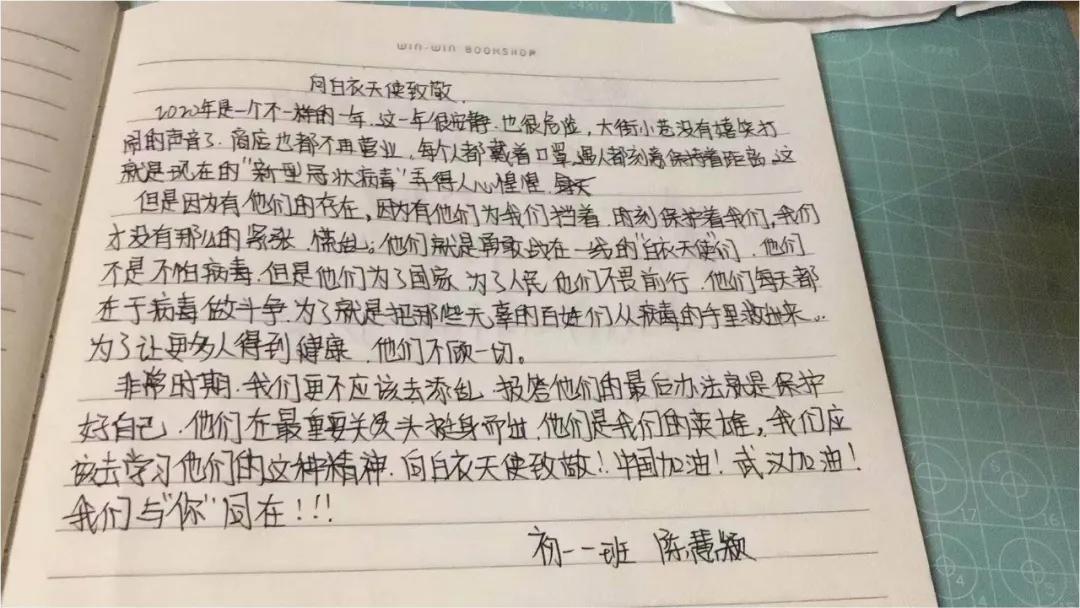 WIN-WIN BOOKSHOP
向白衣天使致敬.
2020年是一个不一样的一年.这一年很安静.也很危险,大街小巷没有嬉笑打
闹的声音了.商店也都不再营业,每个人都戴着口罩.遇人都刻意保持着距离.这
就是现在的"新型冠状病毒"弄得人心惶惶.每天
但是因为有他们的存在,因为有他们为我们挡着.时刻保护着我们,我们
才没有那么的紧张.慌乱;他们就是勇敢战在一线的"白衣天使"们.他们
不是不怕病毒.但是他们为了国家.为了人民.他们不畏前行.他们每天都
在于病毒做斗争.为了就是把那些无辜的百姓们从病毒的手里救出来..
为了让更多人得到健康.他们不顾一切。
非常时期.我们更不应该去添乱.报答他们的最后办法就是保护
好自己.他们在最重要关头挺身而出.他们是我们的英雄,我们应
该去学习他们的这种精神.向白衣天使致敬!中国加油!武汉加油!
我们与"你"同在!!!
初一一班 陈慧颖
17
16
4
5
6